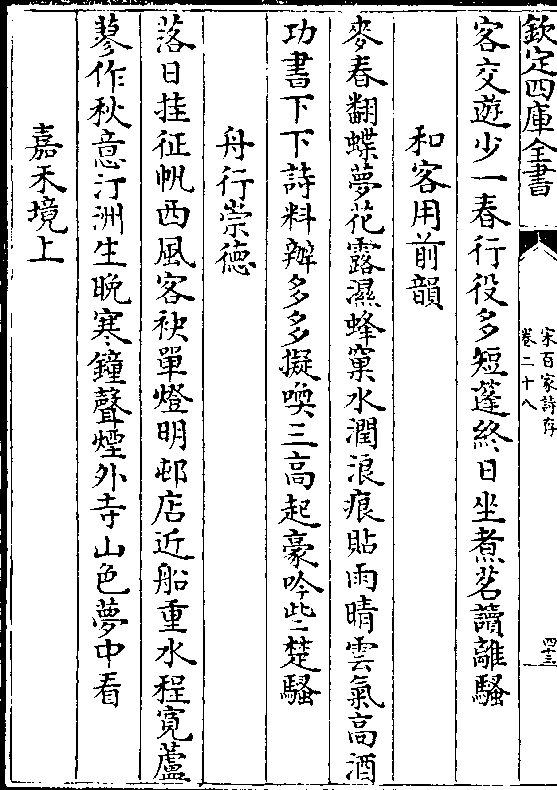 欽定四庫全書
宋百家詩存
卷二十八
四十三
客交遊少一春行役多短蓬終日坐煮茗讀離騷
和客用前韻
麥春翻蝶夢花露濕蜂窠水潤浪痕貼雨晴雲氣高酒
功書下下詩料辦多多擬喚三高起豪吟些楚騷
舟行崇德
落日挂征帆西風客袂單燈明邨店近船重水程寛蘆
蓼作秋意汀洲生晚寒鐘聲煙外寺山色夢中看
嘉禾境上